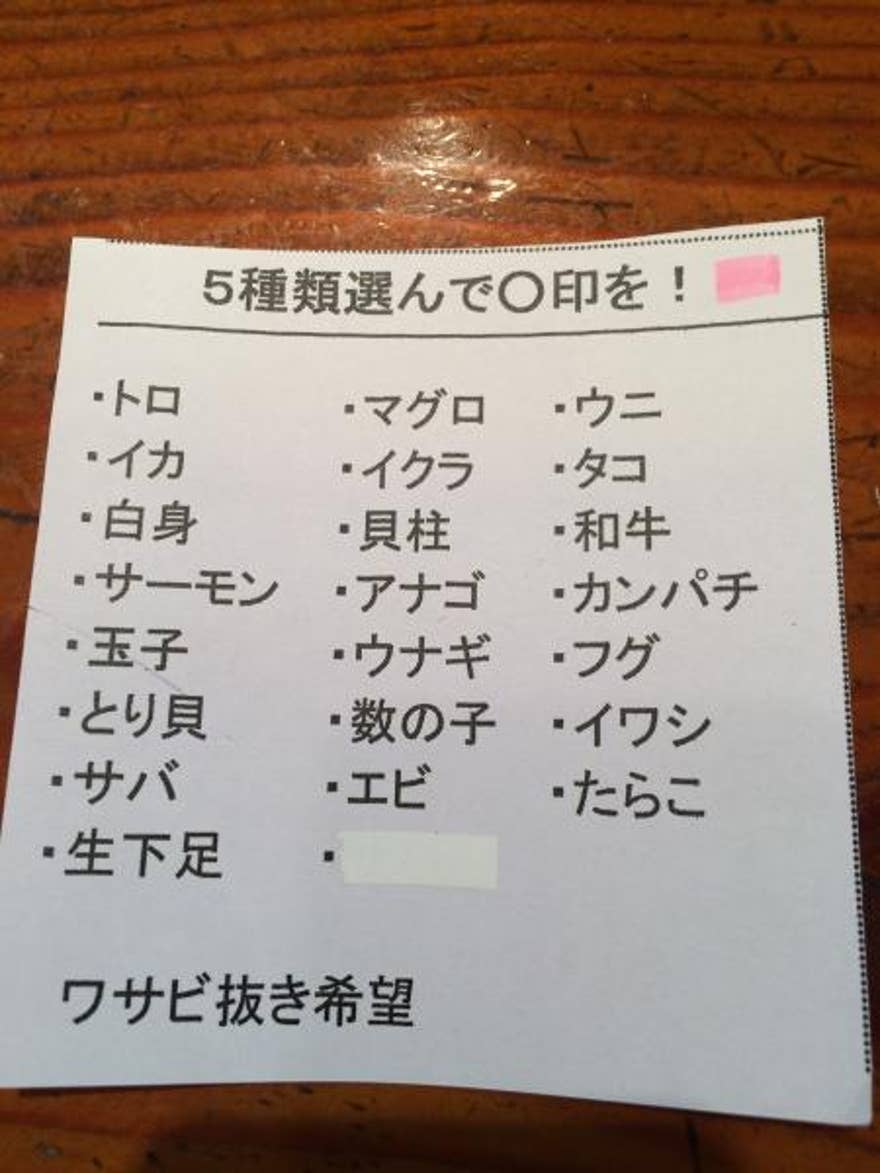 5種類選んで〇印を！
・トロ ・マグロ ・ウニ
・イカ ・イクラ ・タコ
・白身 ・貝柱 ・和牛
・サーモン ・アナゴ ・カンパチ
・玉子 ・ウナギ ・フグ
・とり貝 ・数の子 ・イワシ
・サバ ・エビ ・たらこ
・生下足 ・
ワサビ抜き希望